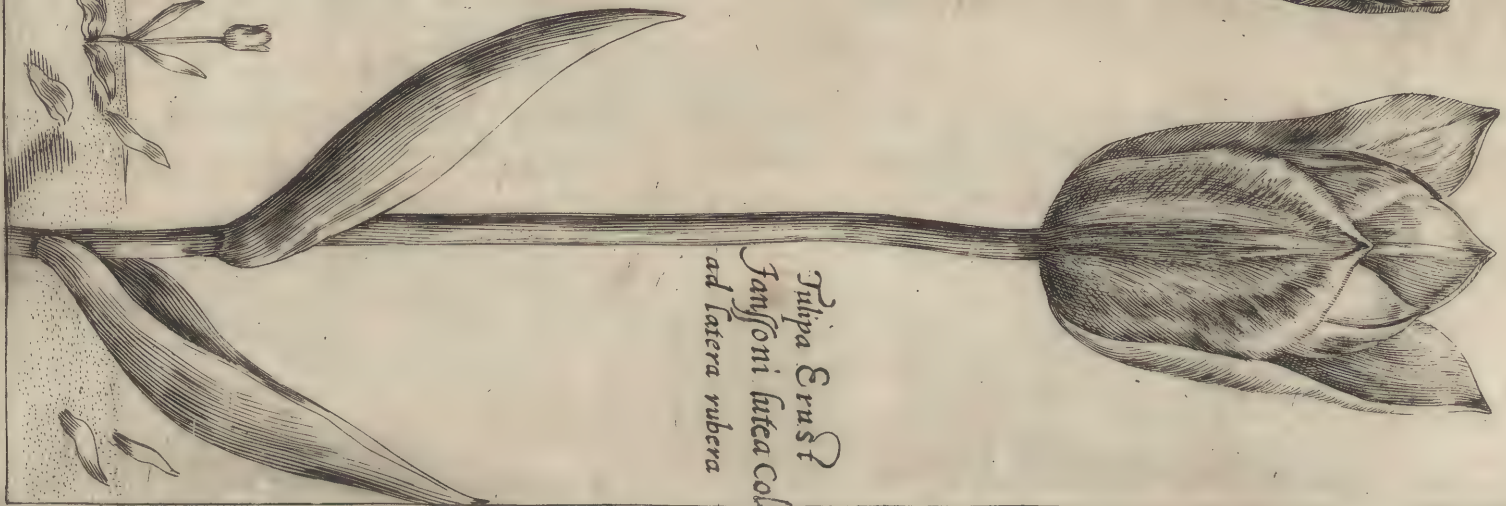 Tulipa Ernst
Janſſoni lutea Col
ad latera rubera